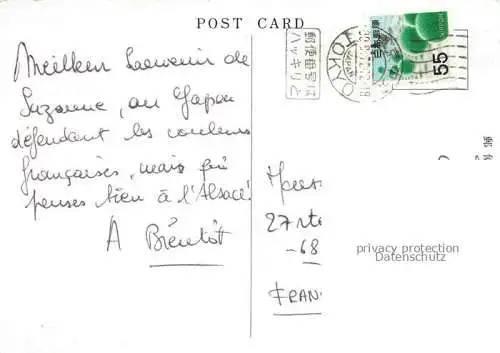 POST CARD
郵便番号は
ハッキリと
TOKYO
NIPPON
55
Meilleur Souvenir de
Suzanne, au Japon
défendant les couleurs
françaises, mais qui
penses bien à l'Alsace!
A Bientôt
27 rte
-68
FRAN
privacy protection
Datenschutz